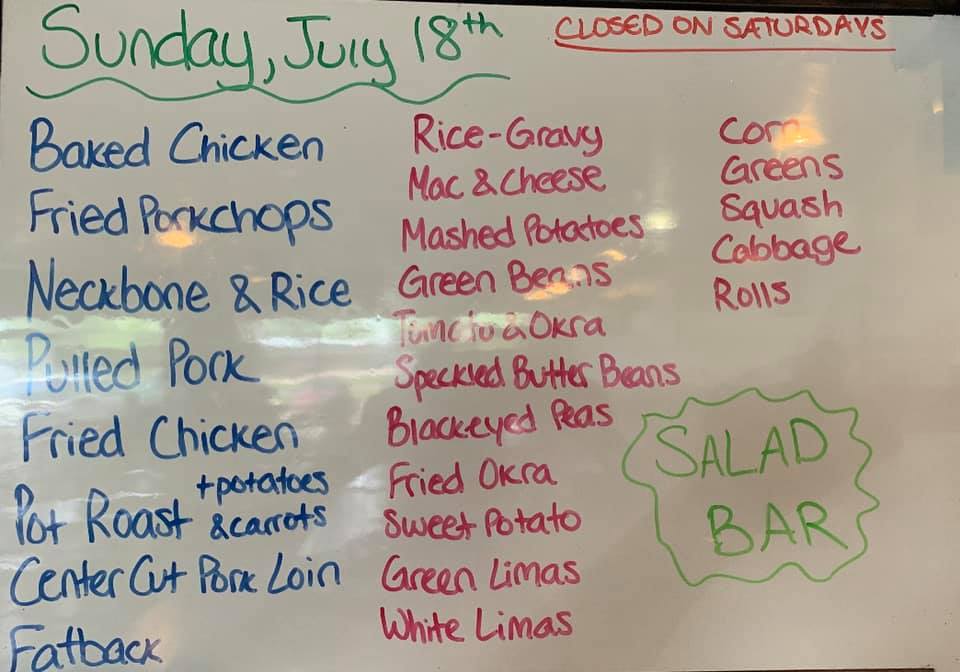 Sunday, July 18th
CLOSED ON SATURDAYS
Baked Chicken
Fried Porkchops
Neckbone & Rice
Pulled Pork
Fried Chicken
Pot Roast +potatoes
& carrots
Center Cut Pork Loin
Fatback
Rice-Gravy
Mac & Cheese
Mashed Potatoes
Green Beans
Tomato & Okra
Speckled Butter Beans
Blackeyed Peas
Fried Okra
Sweet Potato
Green Limas
White Limas
Corn
Greens
Squash
Cabbage
Rolls
SALAD
BAR